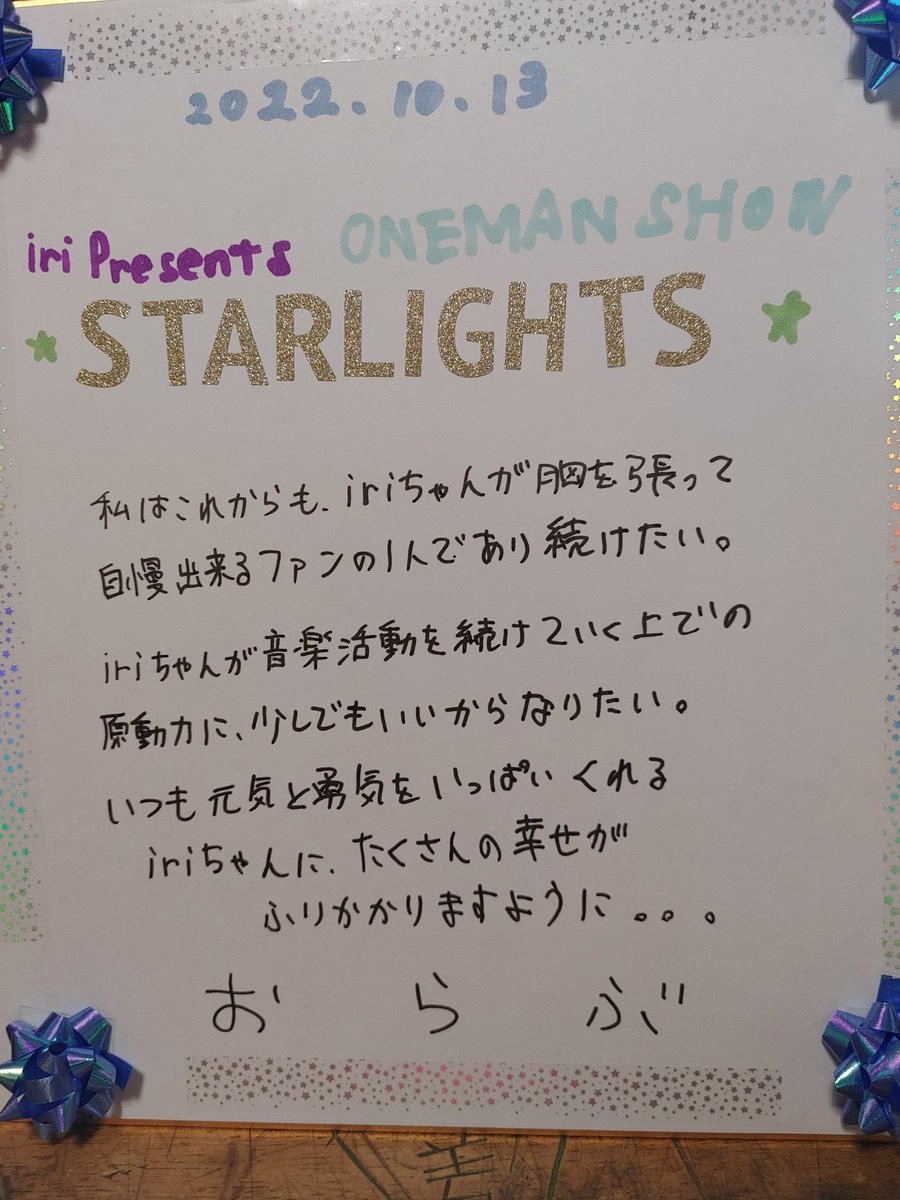 2022.10.13
iri Presents ONEMAN SHOW
STARLIGHTS
私はこれからも、iriちゃんが胸を張って
自慢出来るファンの1人であり続けたい。
iriちゃんが音楽活動を続けていく上での
原動力に、少しでもいいからなりたい。
いつも元気と勇気をいっぱいくれる
iriちゃんに、たくさんの幸せが
ふりかかりますように。。。
おらぶ